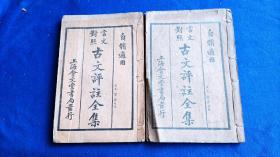 自修適用
言文對照
古文評註全集
上海會文堂書局發行
自修適用
言文對照
古文評註全集
上海會文堂書局發行